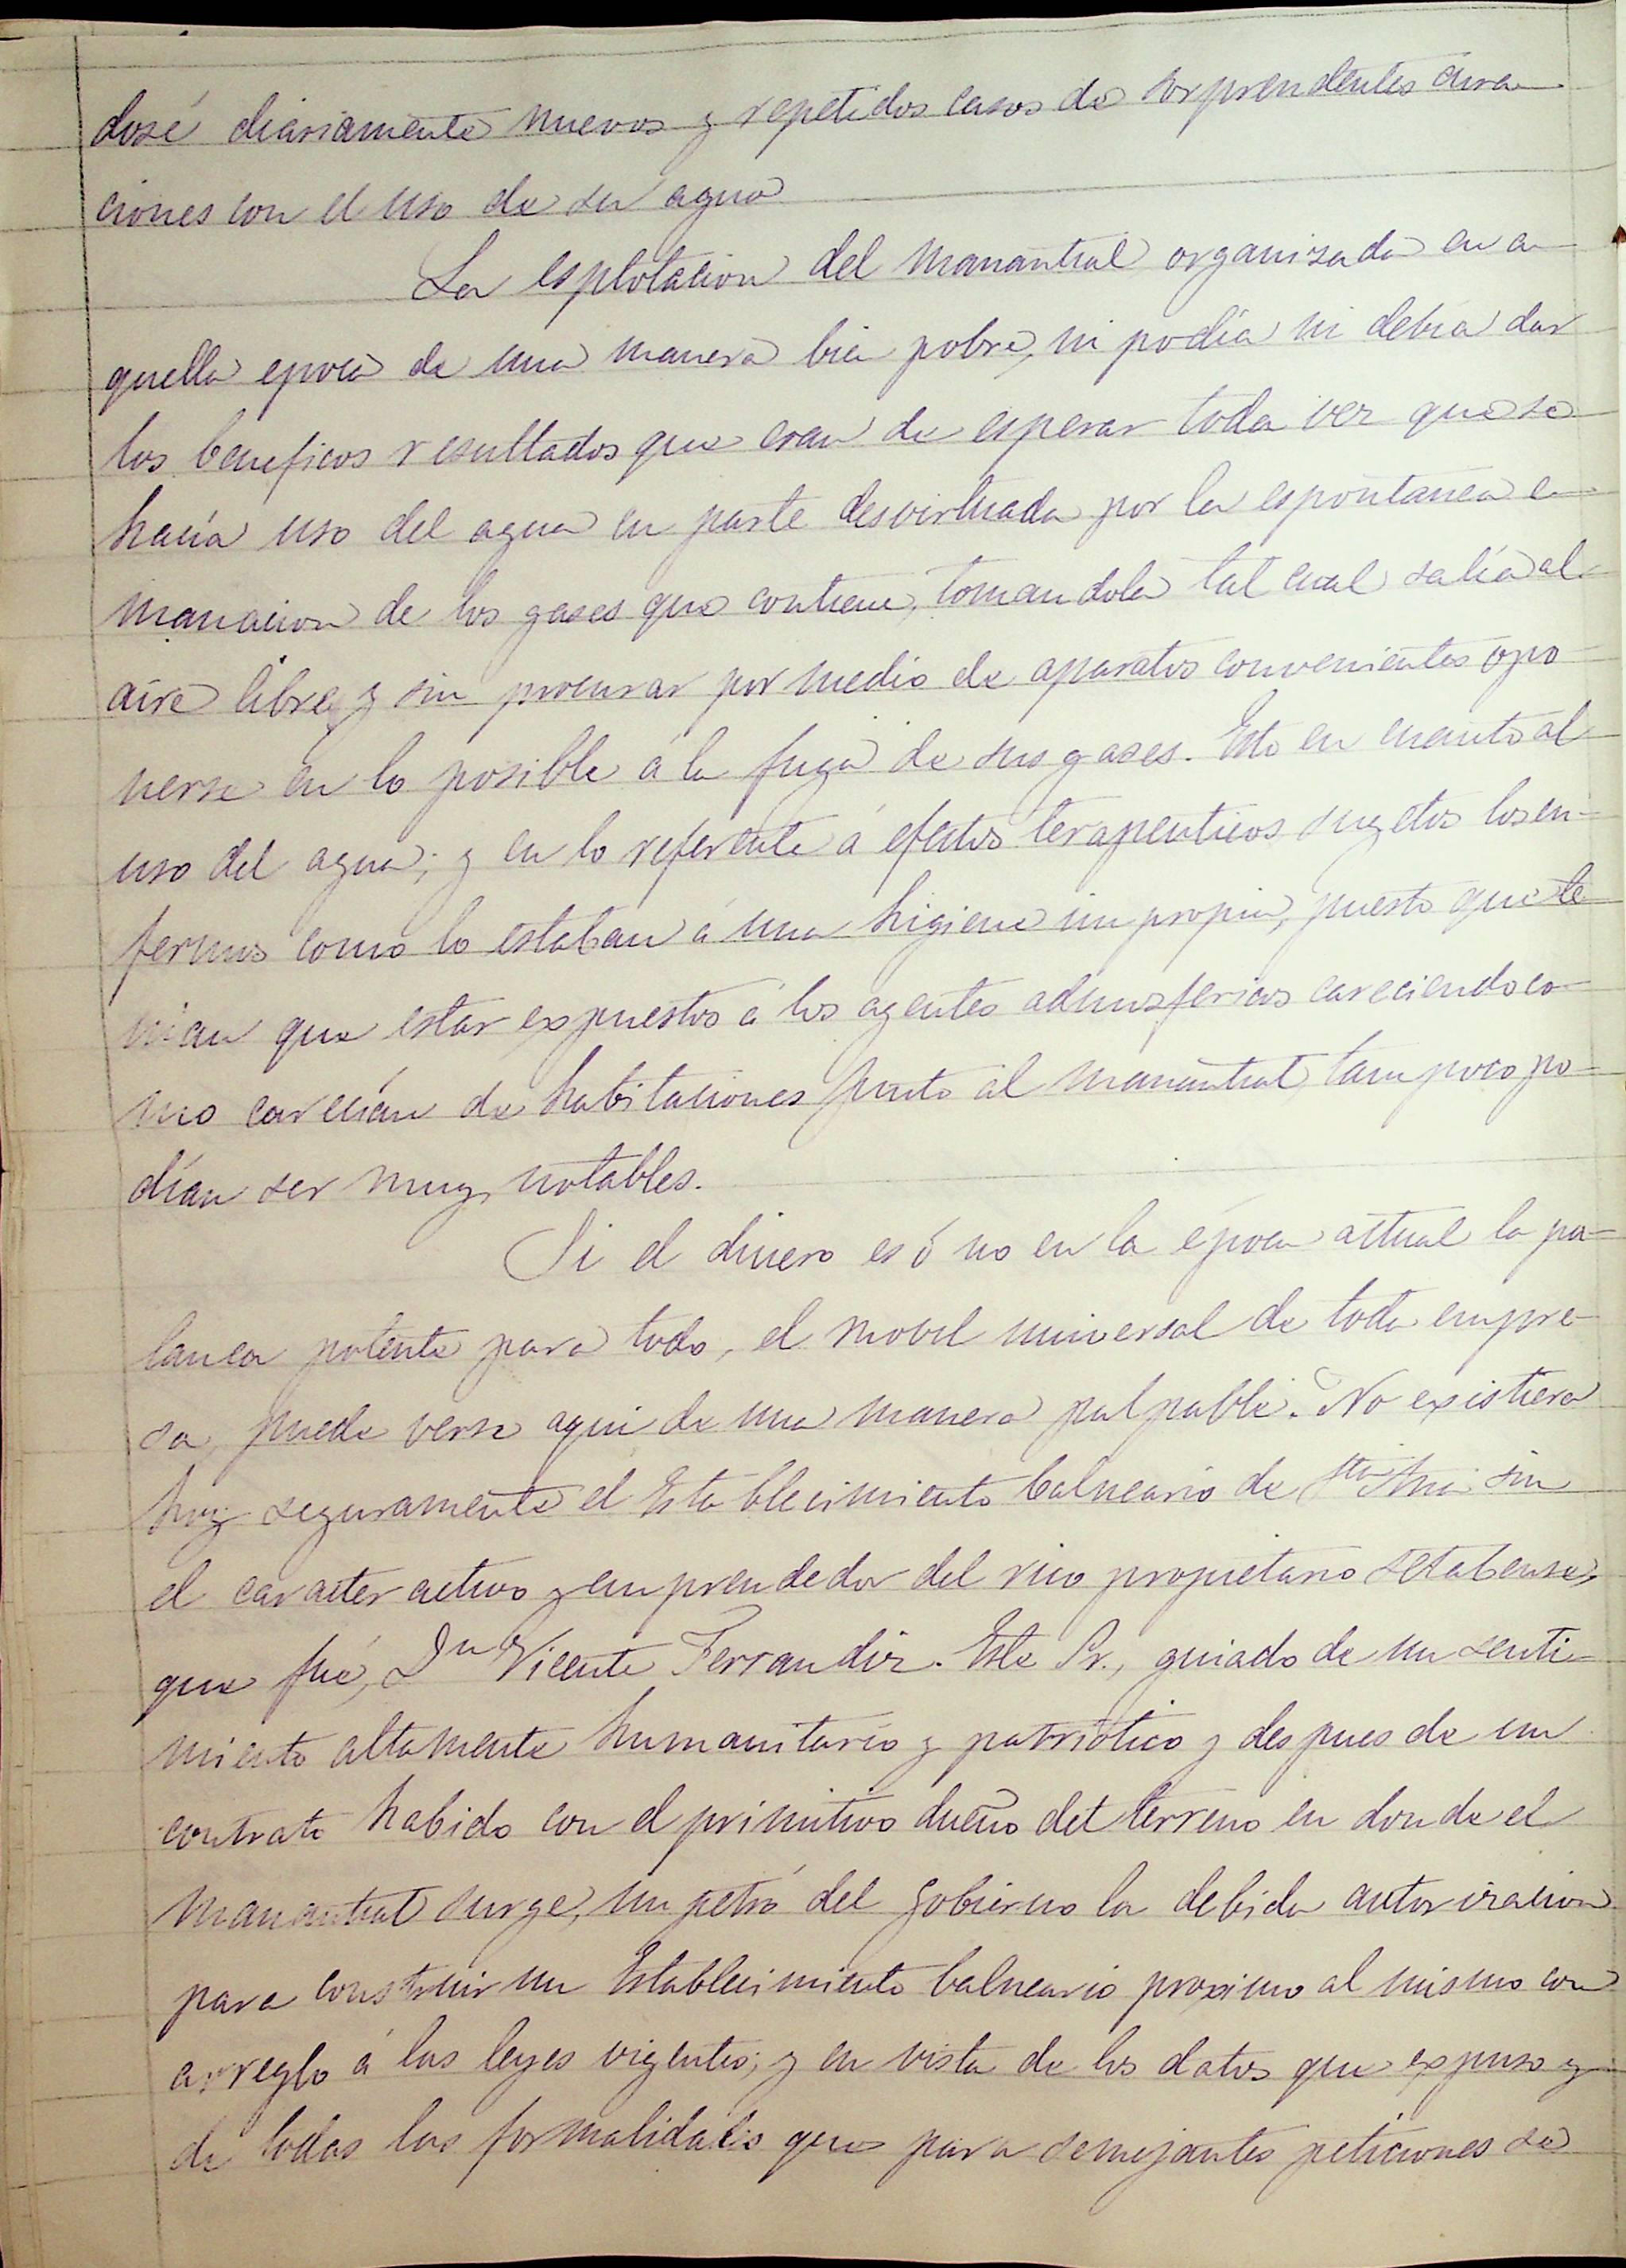 dosé diariamente nuevos y repetidos casos de sorprendentes cura-
ciones con el uso de su agua
La esplotacion del manantial organizada en a-
quella epoca de una manera bien pobre, ni podía ni debia dar
los beneficos resultados que eran de esperar toda vez que se
hacía uso del agua en parte desvirtuada por la espontanea e-
manacion de los gases que contiene, tomandola tal cual salía al
aire libre y sin procurar por medio de aparatos convenientes opo-
nerse en lo posible á la fuga de sus gases. Esto en cuanto al
uso del agua; y en lo referente á efectos terapeuticos sugetos los en-
fermos como lo estaban á una higiene impropia, puesto que te-
nian que estar expuestos á los agentes admosfericos careciendo co-
mo carecían de habitaciones junto al manantial, tampoco po-
dían ser muy notables.
Si el dinero es ó no en la época actual la pa-
lanca potente para todo, el mobil universal de toda empre-
sa, puede verse aqui de una manera palpable. No existiera
hoy seguramente el Establecimiento balneario de sin
el caracter activo y emprendedor del rico propietario setabense,
que fué, Dn Vicente Ferrandiz. Este Sr., guiado de un senti-
miento altamente humanitario y patriótico y despues de un
contrato habido con el primitivo dueño del terreno en donde el
manantial surge, impetró del gobierno la debida autorizacion
para construir un Establecimiento balneario proximo al mismo con
arreglo á las leyes vigentes; y en vista de los datos que expuso y
de todas las formalidades que para semejantes peticiones se